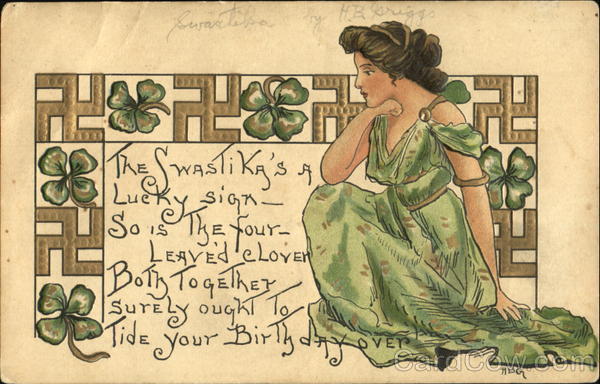 Swastika by H.B. Griggs
The Swastika's a
Lucky sign—
So is The Four-
Leaved Clover
Both Together
surely ought To
Tide your Birthday over
HBG
CardCow.com